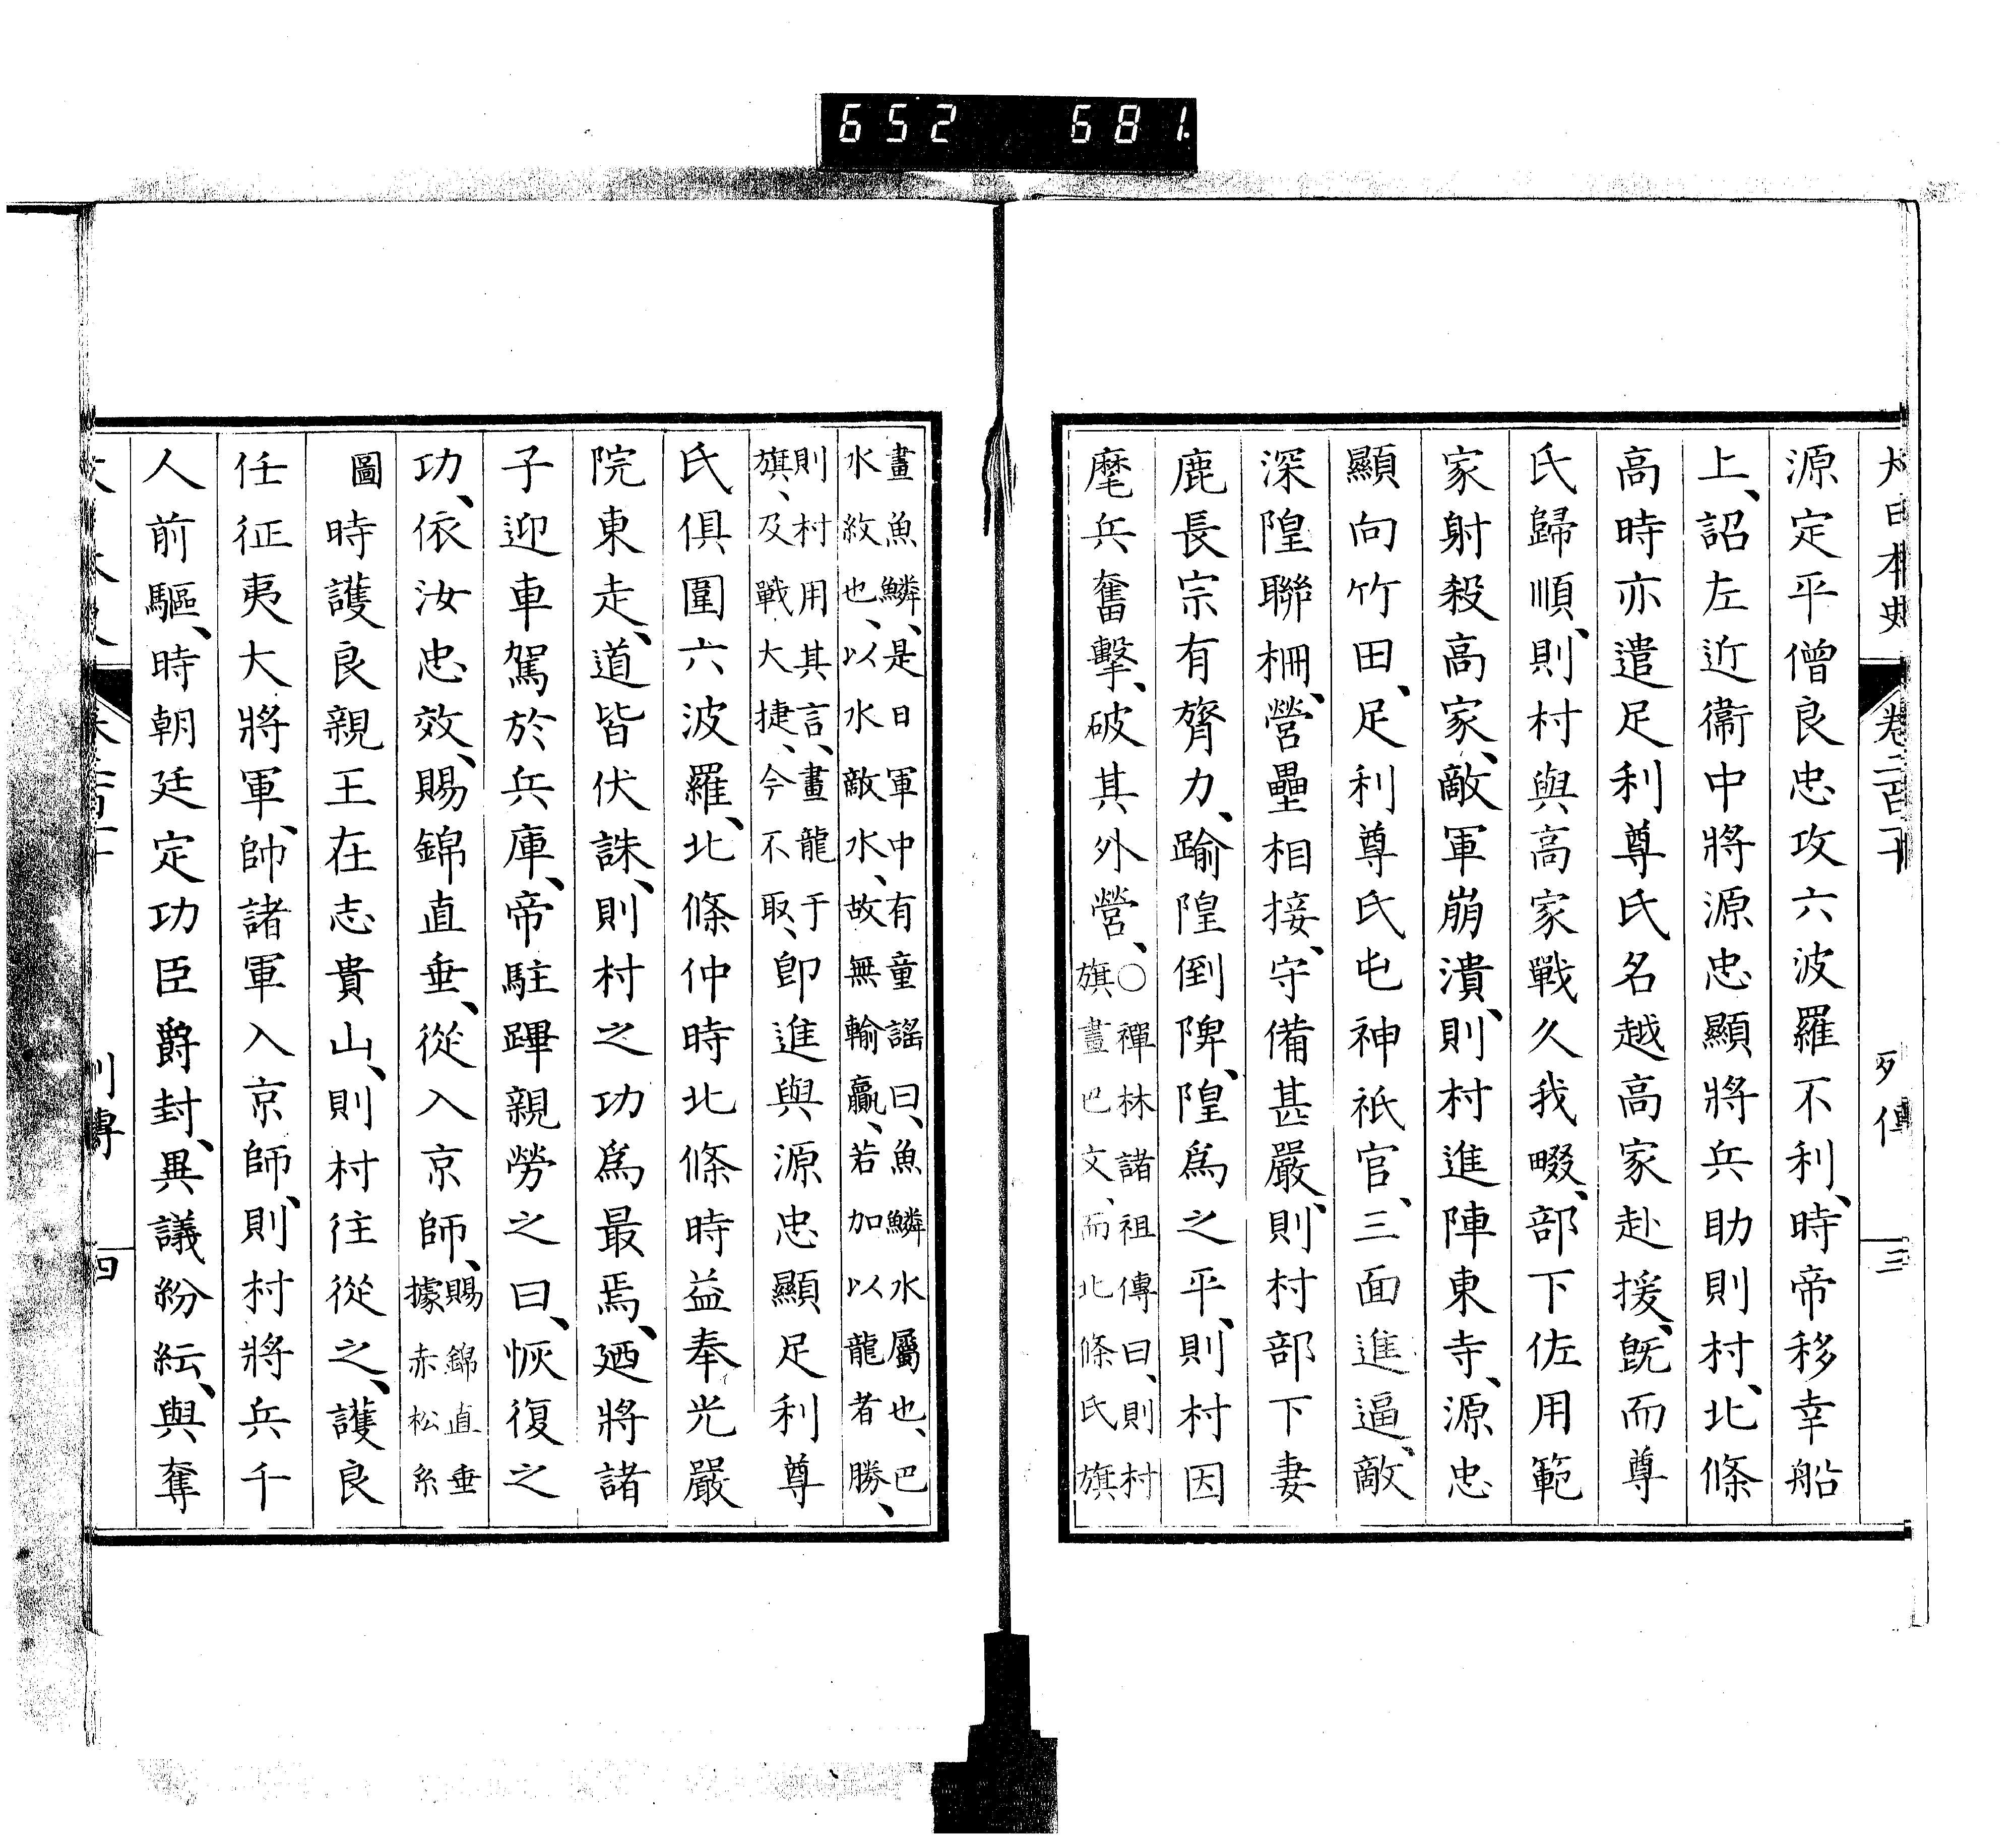 652 681
大日本史 卷二百 列傳 三
源定平僧良忠攻六波羅不利、時帝移幸船
上、詔左近衞中將源忠顯將兵助則村、北條
高時亦遣足利尊氏名越高家赴援、旣而尊
氏歸順、則村與高家戰久我畷、部下佐用範
家射殺高家、敵軍崩潰、則村進陣東寺、源忠
顯向竹田、足利尊氏屯神祇官、三面進逼、敵
深隍聯柵、營壘相接、守備甚嚴、則村部下妻
鹿長宗有膂力、踰隍倒陴、隍爲之平、則村因
麾兵奮擊、破其外營、
○禪林諸祖傳曰、則村
旗畫巴文、而北條氏旗
畫魚鱗、是日軍中有童謠曰、魚鱗水屬也、巴
水紋也、以水敵水、故無輸贏、若加以龍者勝、
則村用其言、畫龍于
旗、及戰大捷、今不取、
卽進與源忠顯足利尊
氏俱圍六波羅、北條仲時北條時益奉光嚴
院東走、道皆伏誅、則村之功爲最焉、廼將諸
子迎車駕於兵庫、帝駐蹕親勞之曰、恢復之
功、依汝忠效、賜錦直垂、從入京師、
賜錦直垂
據赤松系
圖
時護良親王在志貴山、則村往從之、護良
任征夷大將軍、帥諸軍入京師、則村將兵千
人前驅、時朝廷定功臣爵封、異議紛紜、與奪
列傳 四